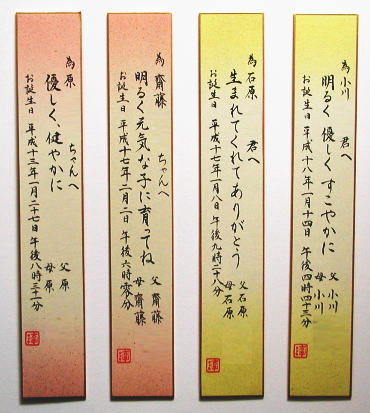 為小川　　君へ
明るく 優しく すこやかに
お誕生日 平成十八年一月十四日 午後四時四十三分
父 小川
母 小川
為石原　　君へ
生まれてくれてありがとう
お誕生日 平成十七年一月八日 午後九時二十八分
父 石原
母 石原
為齋藤　　ちゃんへ
明るく元気な子に育ってね
お誕生日 平成十七年二月二日 午後六時零分
父 齋藤
母 齋藤
為原　　ちゃんへ
優しく、健やかに
お誕生日 平成十三年一月二十七日 午後八時三十一分
父 原
母 原